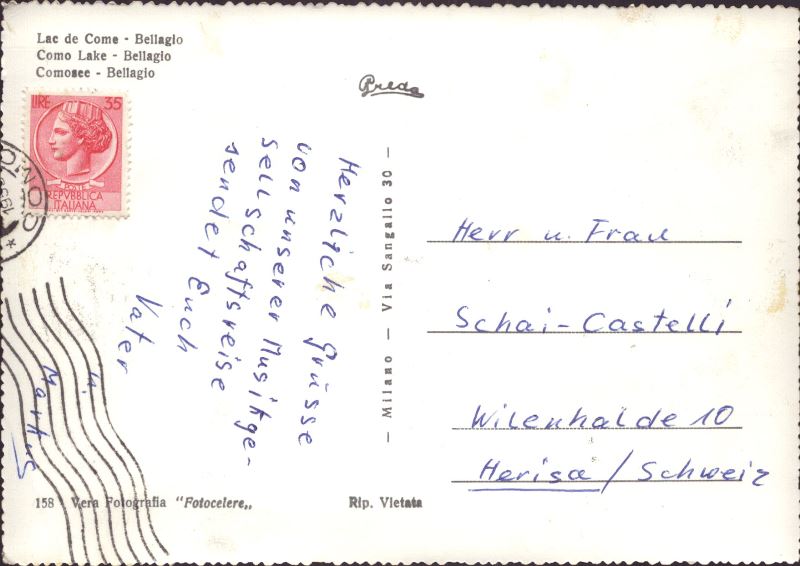 Lac de Come - Bellagio
Como Lake - Bellagio
Comosee - Bellagio
Preda
LIRE 35
POSTE
REPVBBLICA
ITALIANA
Herzliche Grüsse
von unserer Musikge-
sellschaftsreise
sendet Euch
Vater
u. Markus
— Milano — Via Sangallo 30 —
Herr u. Frau
Schai-Castelli
Wilenhalde 10
Herisa / Schweiz
158 - Vera Fotografia "Fotocelere„
Rip. Vietata